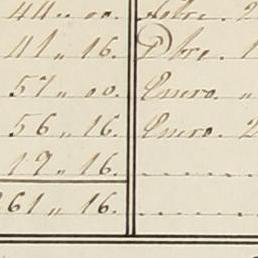 44 „ 00. Nobre. 2
41 „ 16. Dbre. 1
57 „ 00. Enero. „
56 „ 16. Enero. 2
19 „ 16.
261 „ 16.